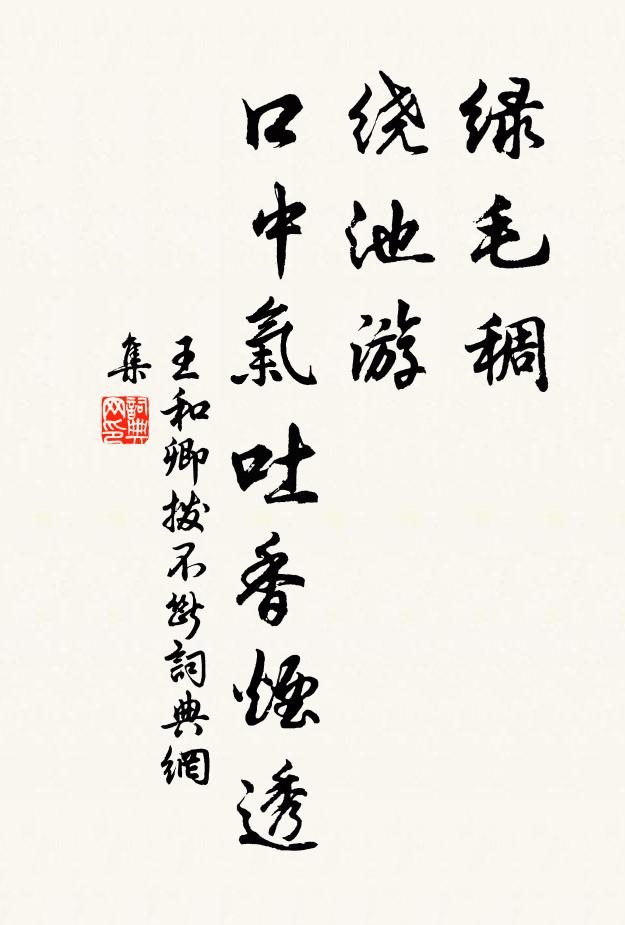 绿毛稠
绕池游
口中氣吐香煙透
王和卿拨不斷詞典網
集
詞典
网印